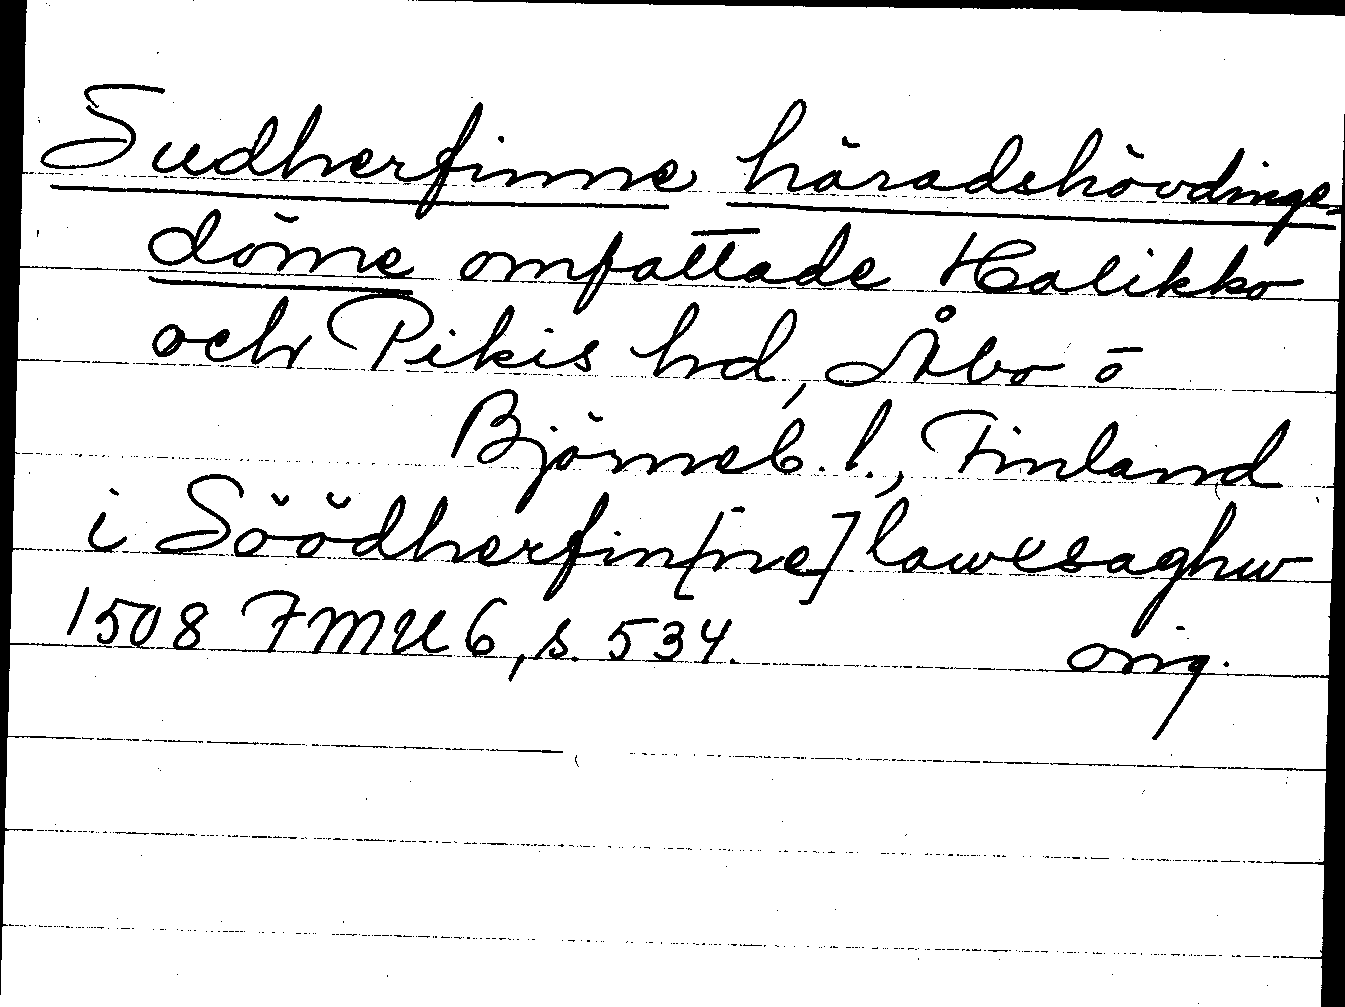 Sudherfinne häradshövdinge-
döme omfattade Halikko
och Pikis hd, Åbo o
Björneb. l., Finland
i Söödherfin[ne] lawesaghw
1508 FMU 6, s. 534. orig.